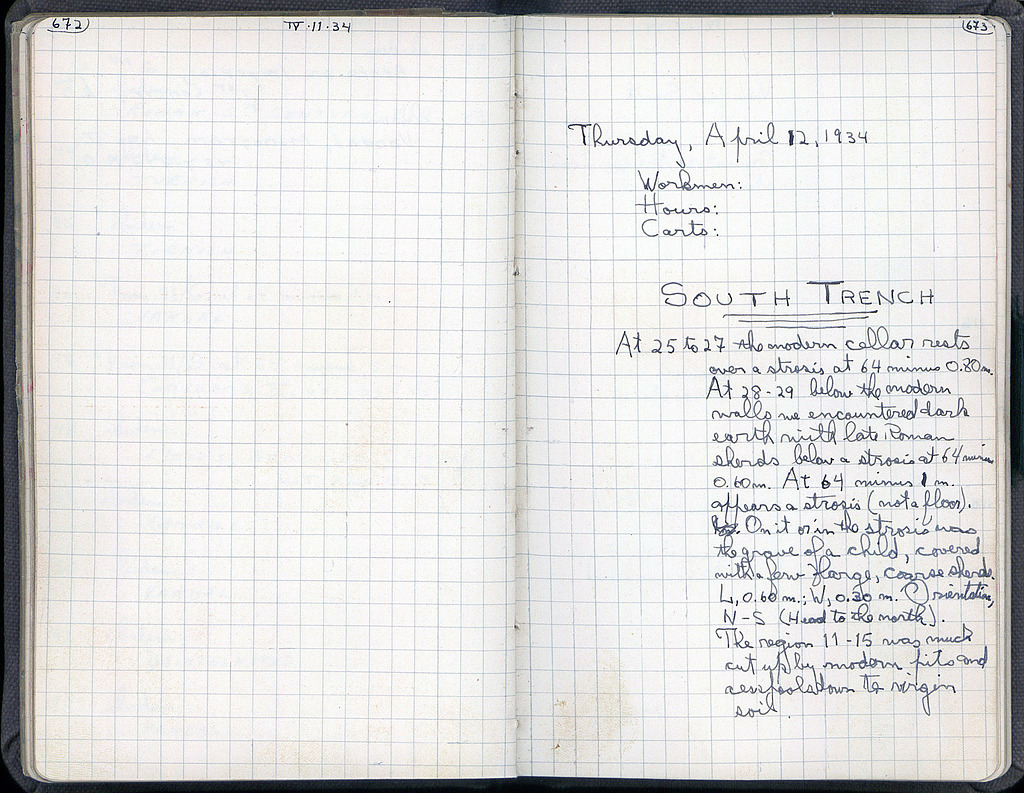 672
IV·11·34
673
Thursday, April 12, 1934
Workmen:
Hours:
Carts:
SOUTH TRENCH
At 25 to 27 the modern cellar rests
over a strosis at 64 minus 0.80m.
At 28-29 below the modern
walls we encountered dark
earth with late Roman
sherds below a strosis at 64 minus
0.60m. At 64 minus 1 m.
appears a strosis (not a floor).
On it or in the strosis was
the grave of a child, covered
with a few large, coarse sherds.
L, 0.60 m.; W, 0.30 m. Orientation,
N-S (Head to the north).
The region 11-15 was much
cut up by modern pits and
cesspools down to virgin
soil.